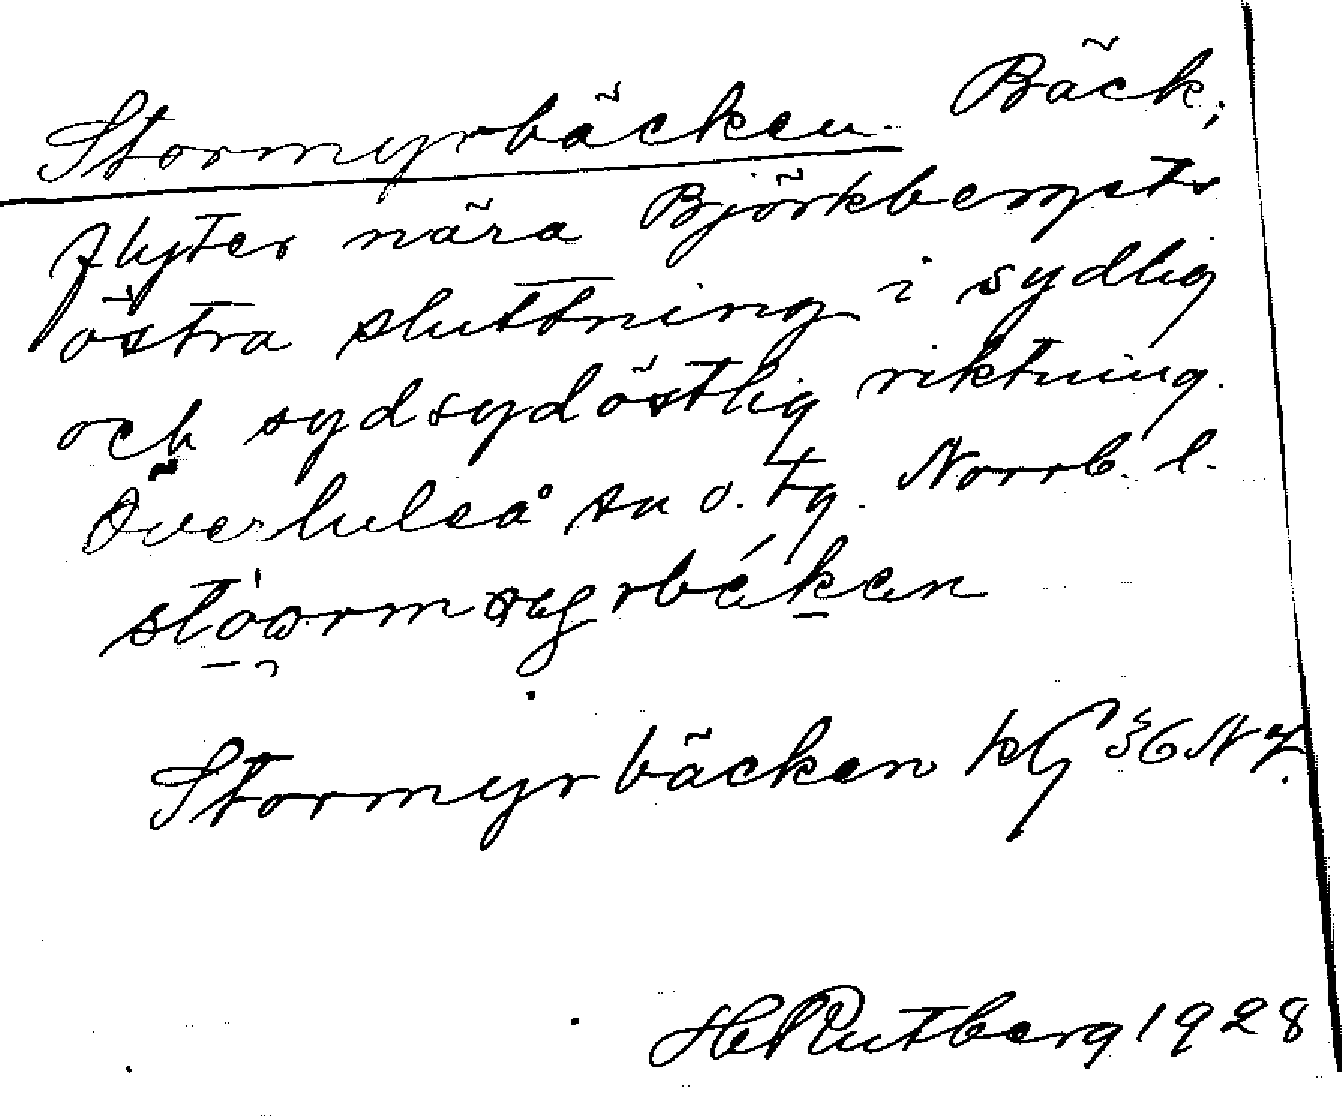 Stormyrbäcken. Bäck;
flyter nära Björkbergets
östra sluttning i sydlig
och sydsydöstlig riktning.
Överluleå sn o. tg. Norrb. l.
Stormyrbäcken
H Rutberg 1928